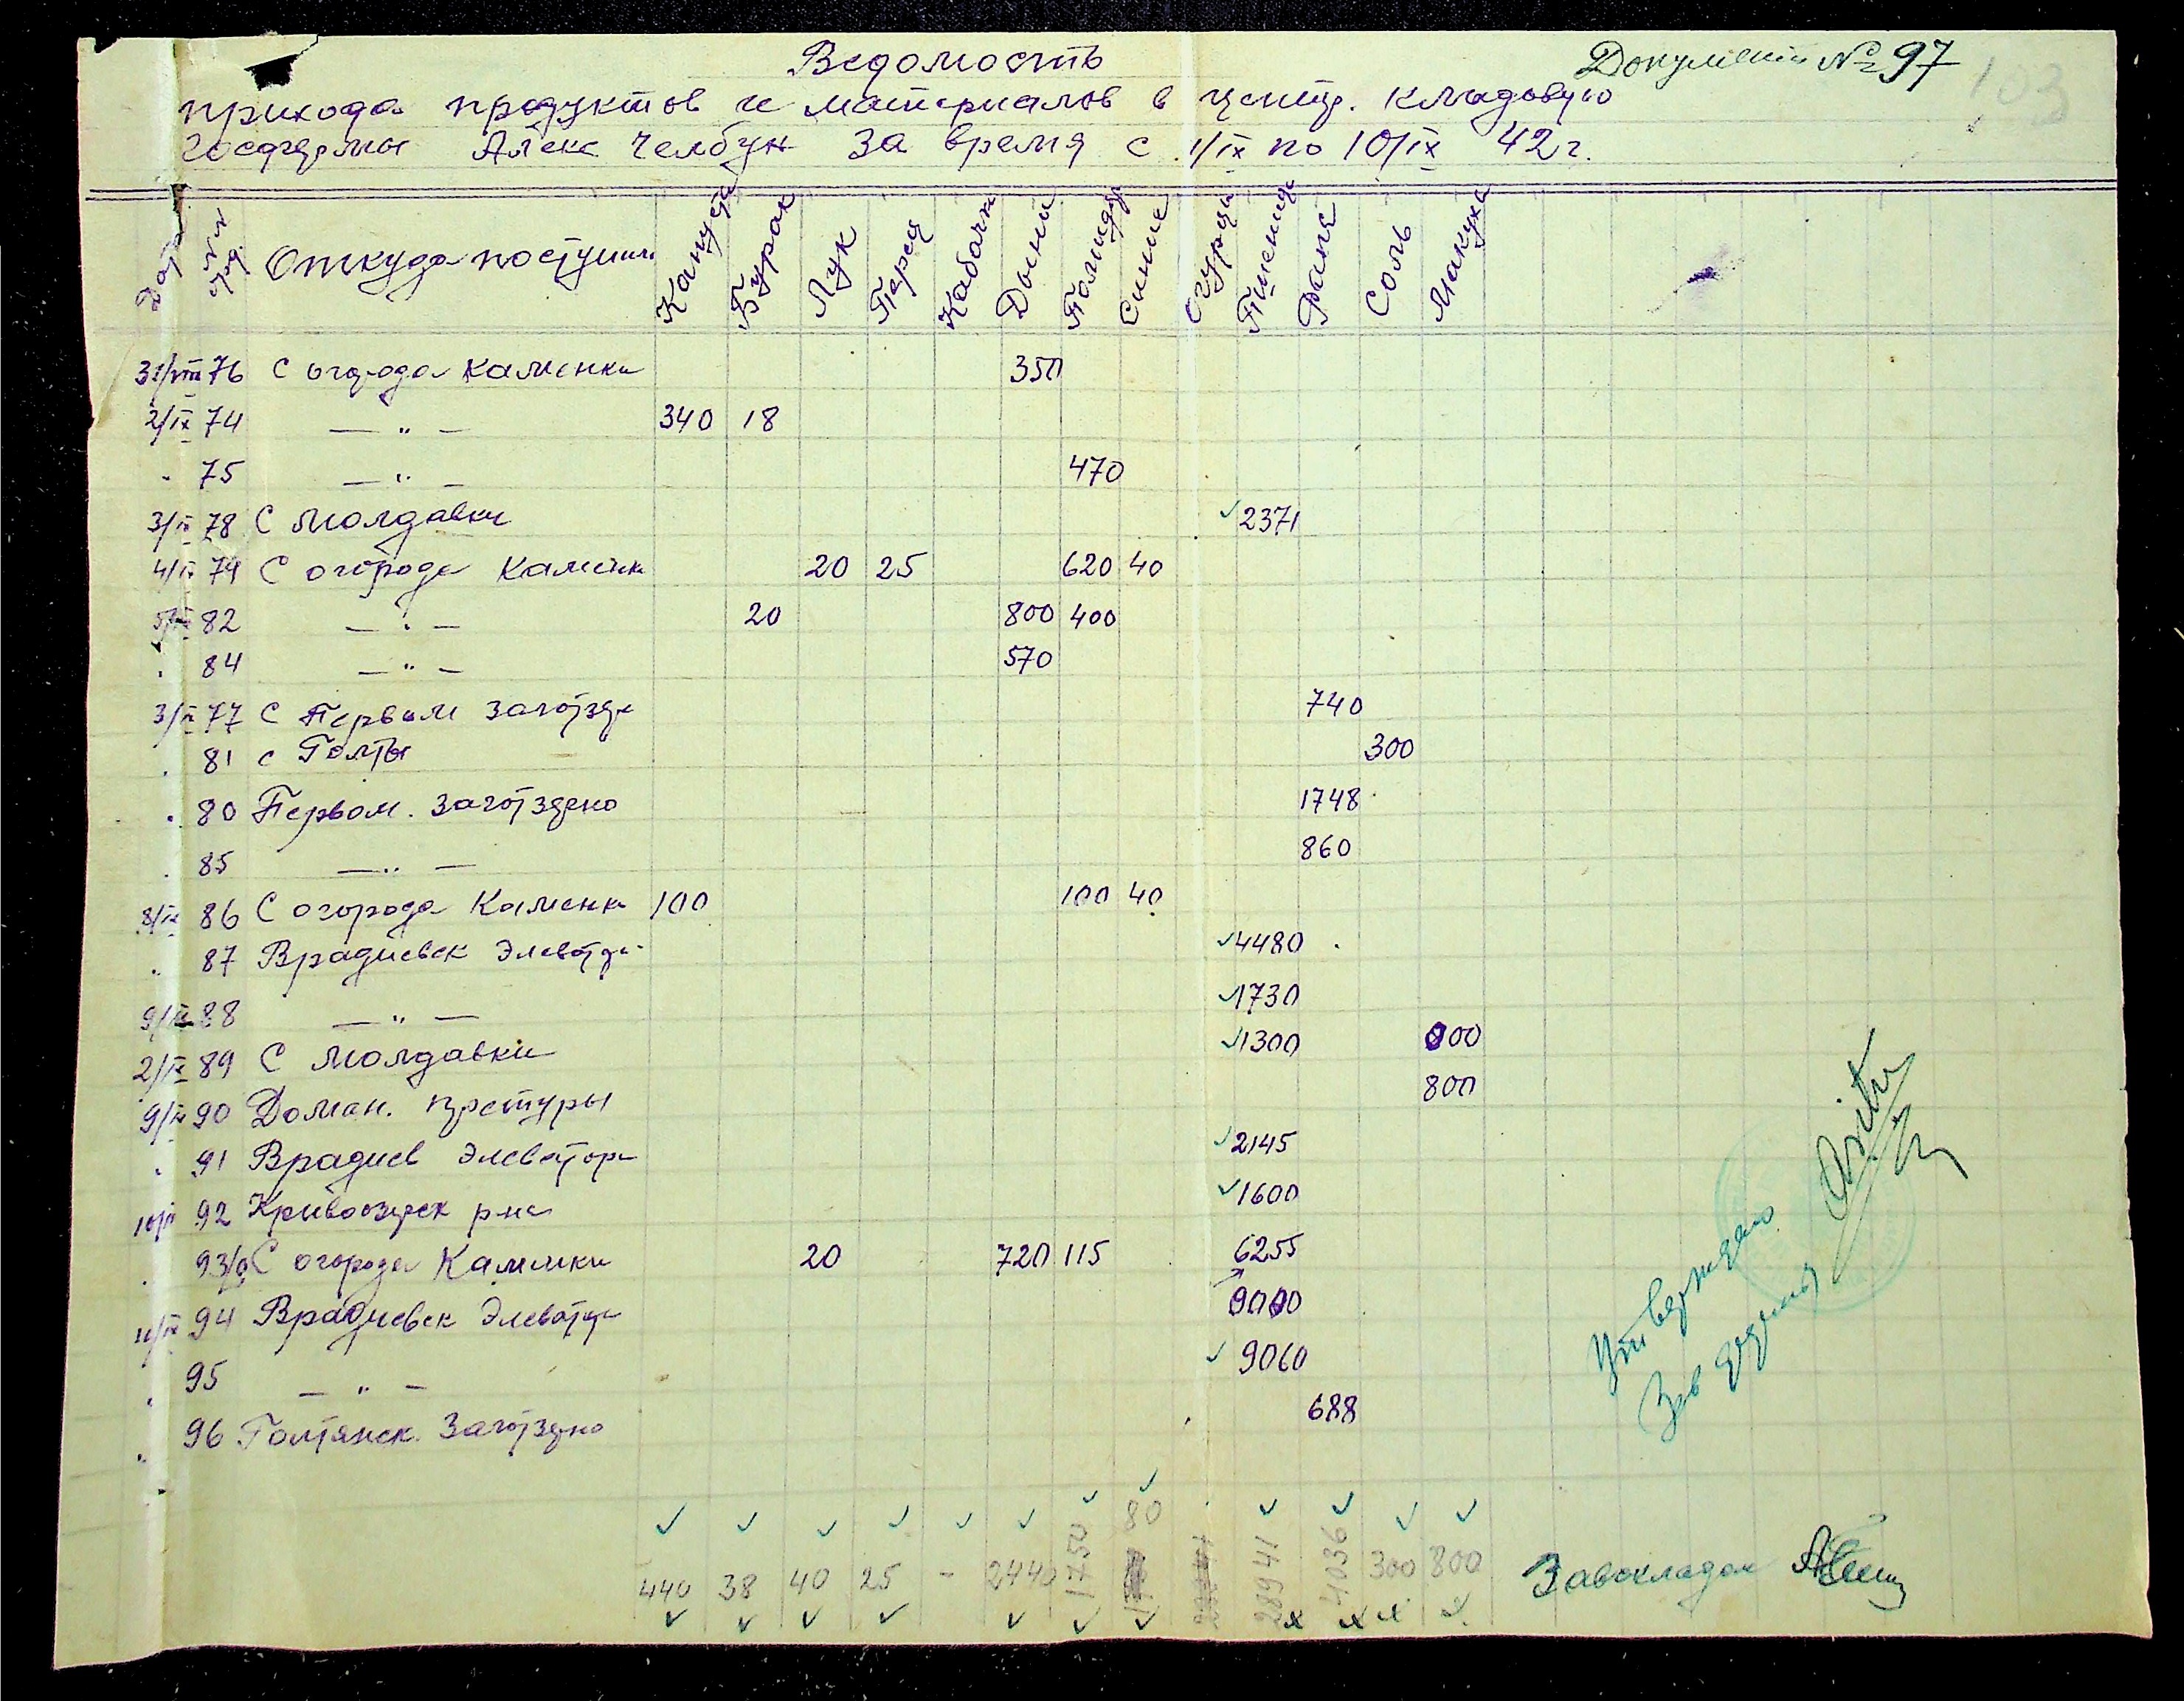 Документ № 97
103
Ведомость
прихода продуктов и материалов в центр. кладовую
госфермы Алекс Челбун за время с 1/IX по 10/IX 42 г.
Дата № № орд. Откуда поступил Капуста Бурак Лук Перец Кабачки Дыни Помидор Синие Огурцы Пшеница Рапс Соль Макуха
31/VIII 76 С огорода Каменки 350
2/IX 74 — " — 340 18
" 75 — " — 470
3/IX 78 С Молдавки 2371
4/IX 79 С огорода Каменк 20 25 620 40
5/IX 82 — " — 20 800 400
" 84 — " — 570
3/IX 77 С Первом Заготзер 740
" 81 с Голты 300
" 80 Первом. Заготзерно 1748
" 85 — " — 860
8/IX 86 С огорода Каменки 100 100 40
" 87 Врадиевск Элеватора 4480
9/IX 88 — " — 1730
2/IX 89 С Молдавки 1300
9/IX 90 Доман. претуры 800
" 91 Врадиев Элеватора 2145
10/IX 92 Кривоозерск 1600
" 93/а С огорода Каменки 20 720 115 6255
11/IX 94 Врадиевск Элеватор
" 95 — " — 9060
" 96 Голтянск. Заготзерно 688
440 38 40 25 - 2440 1750 80 28941 4036 300 800
Утверждаю
Зав
Завскладом